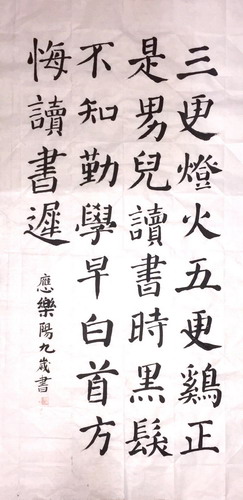 三更燈火五更鷄正
是男兒讀書時黑髮
不知勤學早白首方
悔讀書遲
應樂陽九歲書